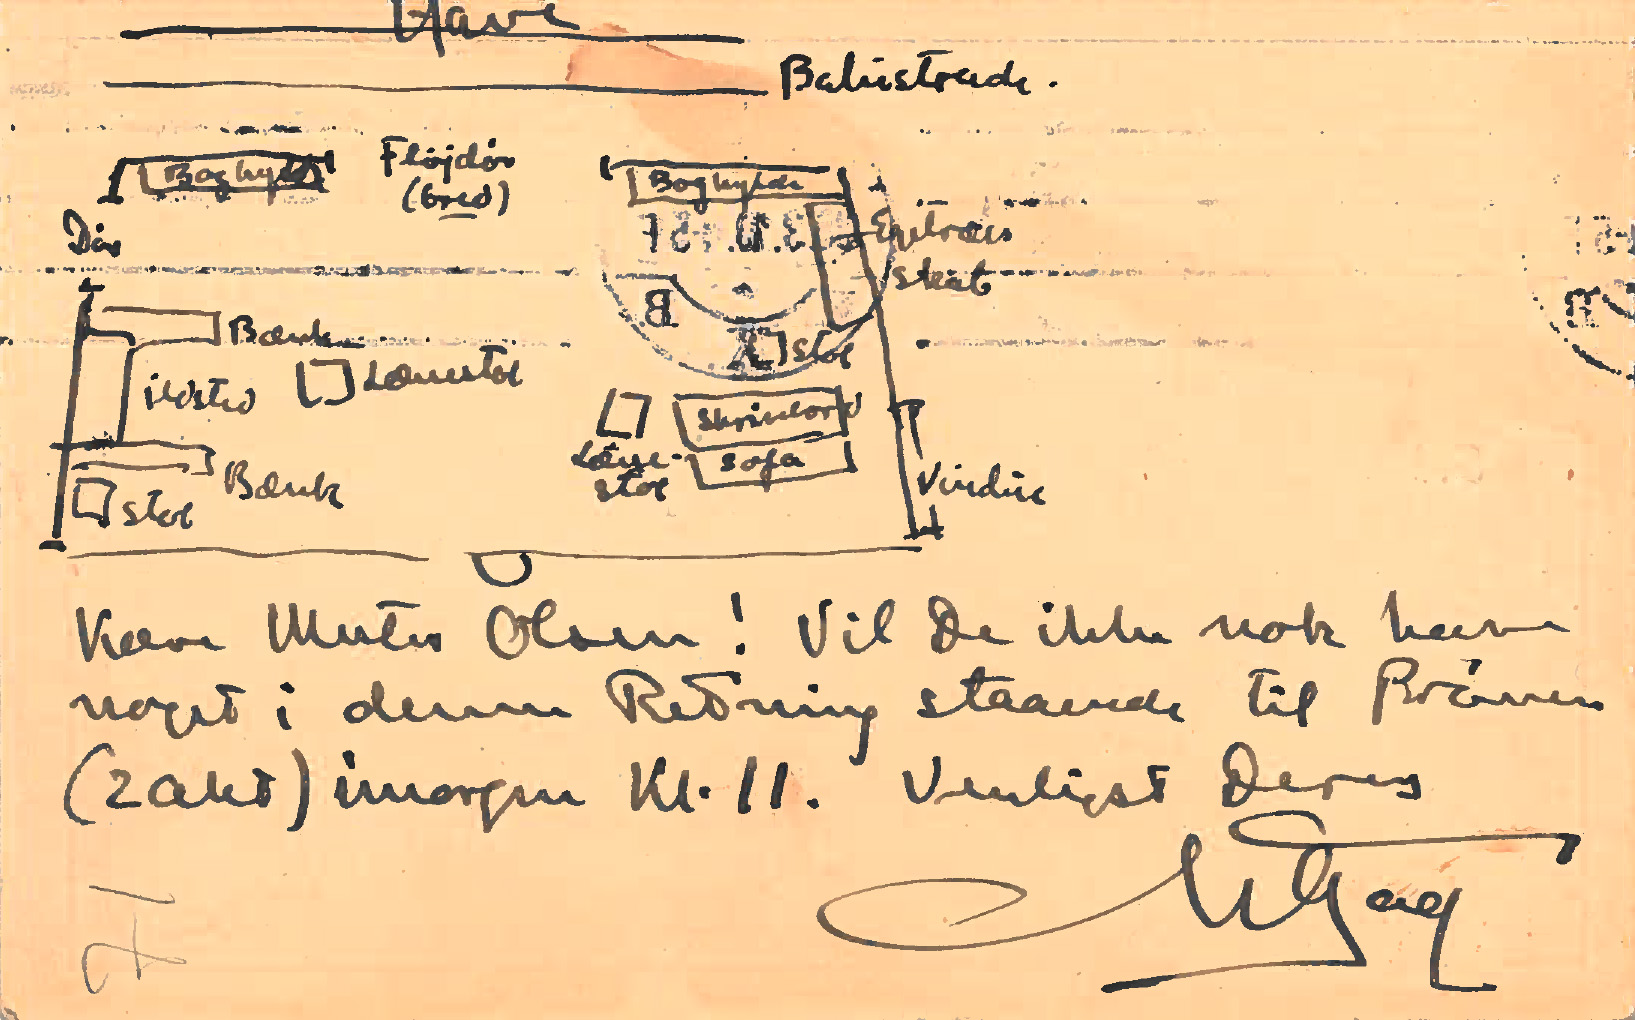 Have
Balustrade.
Boghylde
Fløjdør
(bred)
Boghylde
Dør
Entréens
skab
Bænk
Stol
ildsted
Lænestol
Skrivebord
Læne-
stol
Sofa
Bænk
Vindue
Stol
Kære Mester Olsen! Vil De ikke nok have
noget i denne Retning staaende til Prøven
(2 akt) imorgen Kl. 11. Venligst Deres